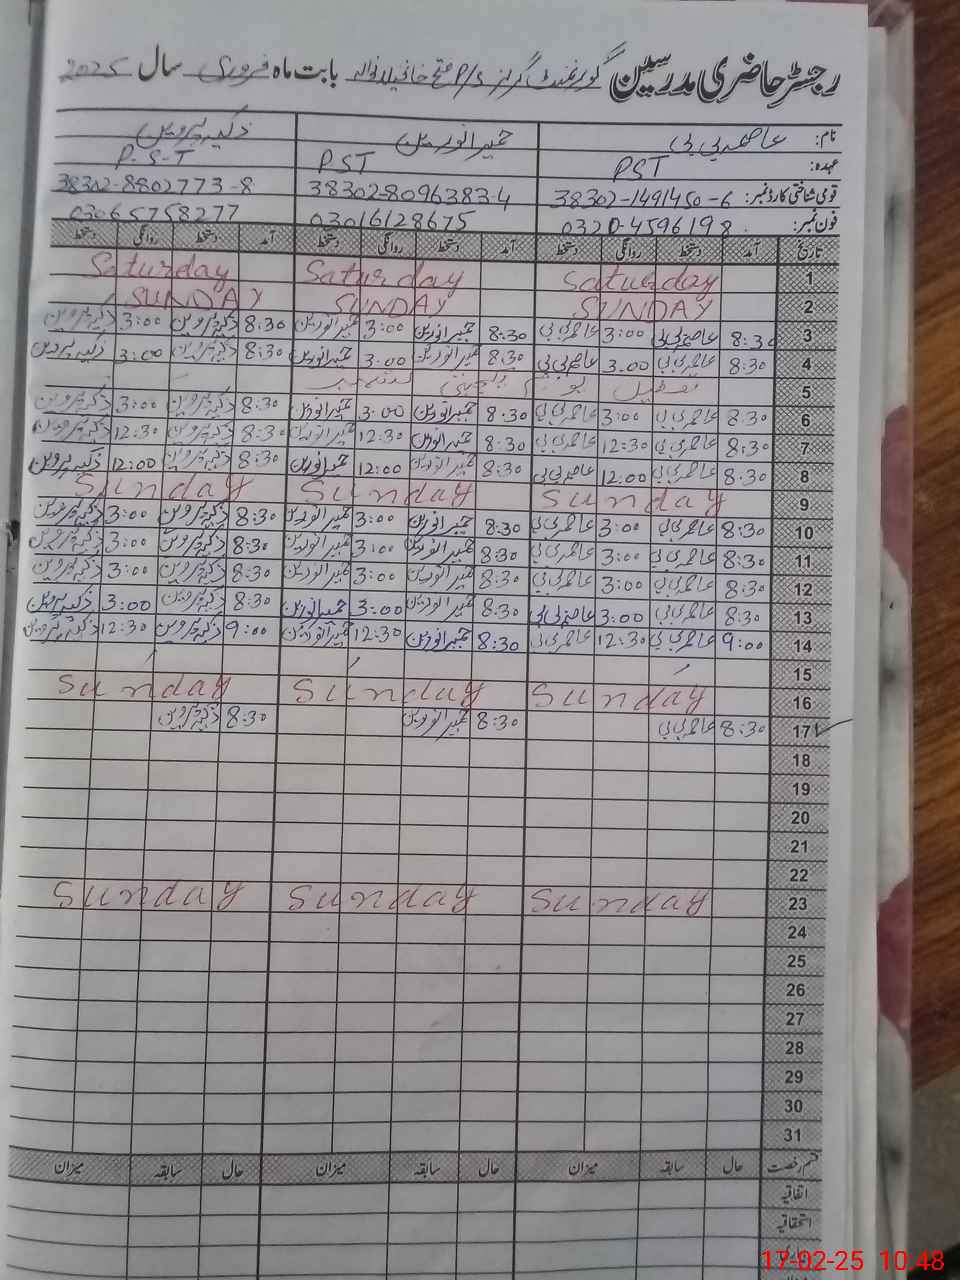 رجسٹر حاضری مدرسین گورنمنٹ گرلز P/S فتح خانیلانوالہ بابت ماہ فروری سال 2025
نام: عاصمہ بی بی حمیرا نورین ذکیہ پروین
عہدہ: PST PST P.S.T
قومی شناختی کارڈ نمبر: 38302-1491450-6 38302-8096383-4 38302-8802773-8
فون نمبر: 0320-4596198 03016128675 03065758277
تاریخ آمد دستخط روانگی دستخط آمد دستخط روانگی دستخط آمد دستخط روانگی دستخط
1 Saturday Saturday Saturday
2 SUNDAY SUNDAY SUNDAY
3 8:30 عاصمہ بی بی 3:00 عاصمہ بی بی 8:30 حمیرا نورین 3:00 حمیرا نورین 8:30 ذکیہ پروین 3:00 ذکیہ پروین
4 8:30 عاصمہ بی بی 3:00 عاصمہ بی بی 8:30 حمیرا نورین 3:00 حمیرا نورین 8:30 ذکیہ پروین 3:00 ذکیہ پروین
5 تعطیل یوم یکجہتی کشمیر
6 8:30 عاصمہ بی بی 3:00 عاصمہ بی بی 8:30 حمیرا نورین 3:00 حمیرا نورین 8:30 ذکیہ پروین 3:00 ذکیہ پروین
7 8:30 عاصمہ بی بی 12:30 عاصمہ بی بی 8:30 حمیرا نورین 12:30 حمیرا نورین 8:30 ذکیہ پروین 12:30 ذکیہ پروین
8 8:30 عاصمہ بی بی 12:00 عاصمہ بی بی 8:30 حمیرا نورین 12:00 حمیرا نورین 8:30 ذکیہ پروین 12:00 ذکیہ پروین
9 Sunday Sunday Sunday
10 8:30 عاصمہ بی بی 3:00 عاصمہ بی بی 8:30 حمیرا نورین 3:00 حمیرا نورین 8:30 ذکیہ پروین 3:00 ذکیہ پروین
11 8:30 عاصمہ بی بی 3:00 عاصمہ بی بی 8:30 حمیرا نورین 3:00 حمیرا نورین 8:30 ذکیہ پروین 3:00 ذکیہ پروین
12 8:30 عاصمہ بی بی 3:00 عاصمہ بی بی 8:30 حمیرا نورین 3:00 حمیرا نورین 8:30 ذکیہ پروین 3:00 ذکیہ پروین
13 8:30 عاصمہ بی بی 3:00 عاصمہ بی بی 8:30 حمیرا نورین 3:00 حمیرا نورین 8:30 ذکیہ پروین 3:00 ذکیہ پروین
14 9:00 عاصمہ بی بی 12:30 عاصمہ بی بی 8:30 حمیرا نورین 12:30 حمیرا نورین 9:00 ذکیہ پروین 12:30 ذکیہ پروین
15
16 Sunday Sunday Sunday
17 8:30 عاصمہ بی بی 8:30 حمیرا نورین 8:30 ذکیہ پروین
18
19
20
21
22
23 Sunday Sunday Sunday
24
25
26
27
28
29
30
31
قسم رخصت حال سابقہ میزان حال سابقہ میزان حال سابقہ میزان
اتفاقیہ
استحقاقیہ
17-02-25 10:48